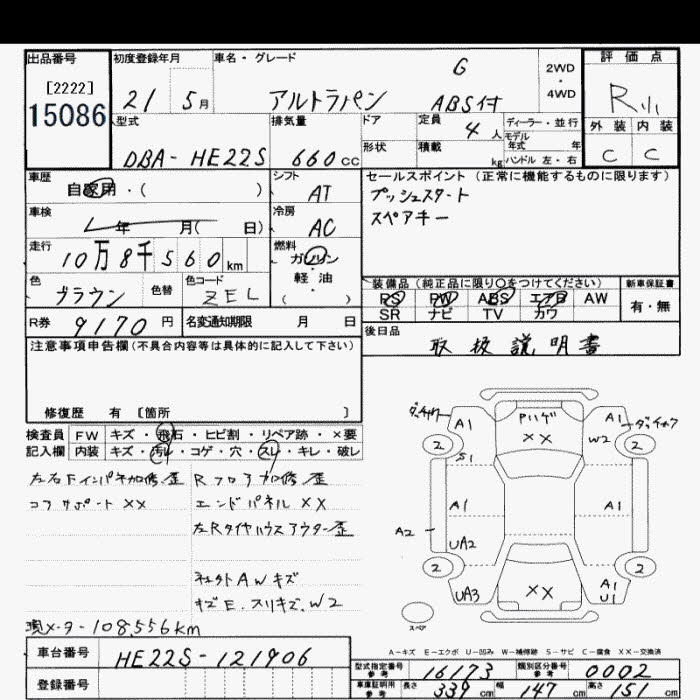 出品番号 初度登録年月 車名・グレード 評価点
[2222] 21 5月 アルトラパン G ABS付 2WD・4WD R
15086
型式 排気量 ドア 定員 4人 ディーラー・並行 外装 内装
DBA-HE22S 660cc 形状 積載 kg モデル年式 年 ハンドル 左・右 C C
車歴 自家用・( ) シフト AT セールスポイント(正常に機能するものに限ります)
プッシュスタート
スペアキー
車検 年 月( 日) 冷房 AC
走行 10万8千560km 燃料 ガソリン・軽油 ( )
色 ブラウン 色替 色コード ZEL
装備品(純正品に限り○をつけてください) 新車保証書
PS PW ABS エアB AW 有・無
SR ナビ TV カワ
R券 9170円 名変通知期限 月 日
後日品 取扱説明書
注意事項申告欄(不具合内容等は具体的に記入して下さい)
修復歴 有 〔箇所 〕
検査員記入欄 FW キズ・飛石・ヒビ割・リペア跡・×要
内装 キズ・汚レ・コゲ・穴・スレ・キレ・破レ
左右Fインパネ加修歪
コアサポートXX
Rフロア加修歪
エンドパネルXX
左Rタイヤハウスアウター歪
AWキズ
キズE.スリキズ.W2
現メーター108,556km
A1 XX A1 W2
2 2
S1
A1 A1
A2 UA2
2 2
UA3 XX A1 U1
スペア
A-キズ E-エクボ U-凹み W-補修跡 S-サビ C-腐食 XX-交換済
車台番号 HE22S-121906
登録番号
型式指定番号 参考 16173 類別区分番号 参考 0002
車庫証明用 参考 長さ 339cm 幅 147cm 高さ 151cm